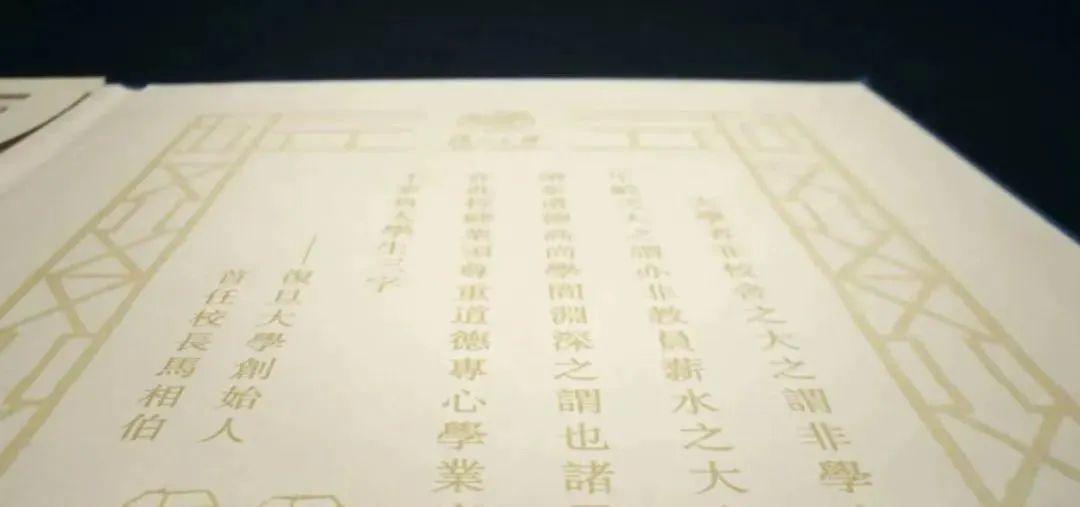 大學者非校舍之大之謂非學
年齡之大之謂亦非教員薪水之大
道德高尚學問淵深之謂也諸
在此校肄業須尊重道德專心學業
負大學生三字
——復旦大學創始人
首任校長馬相伯